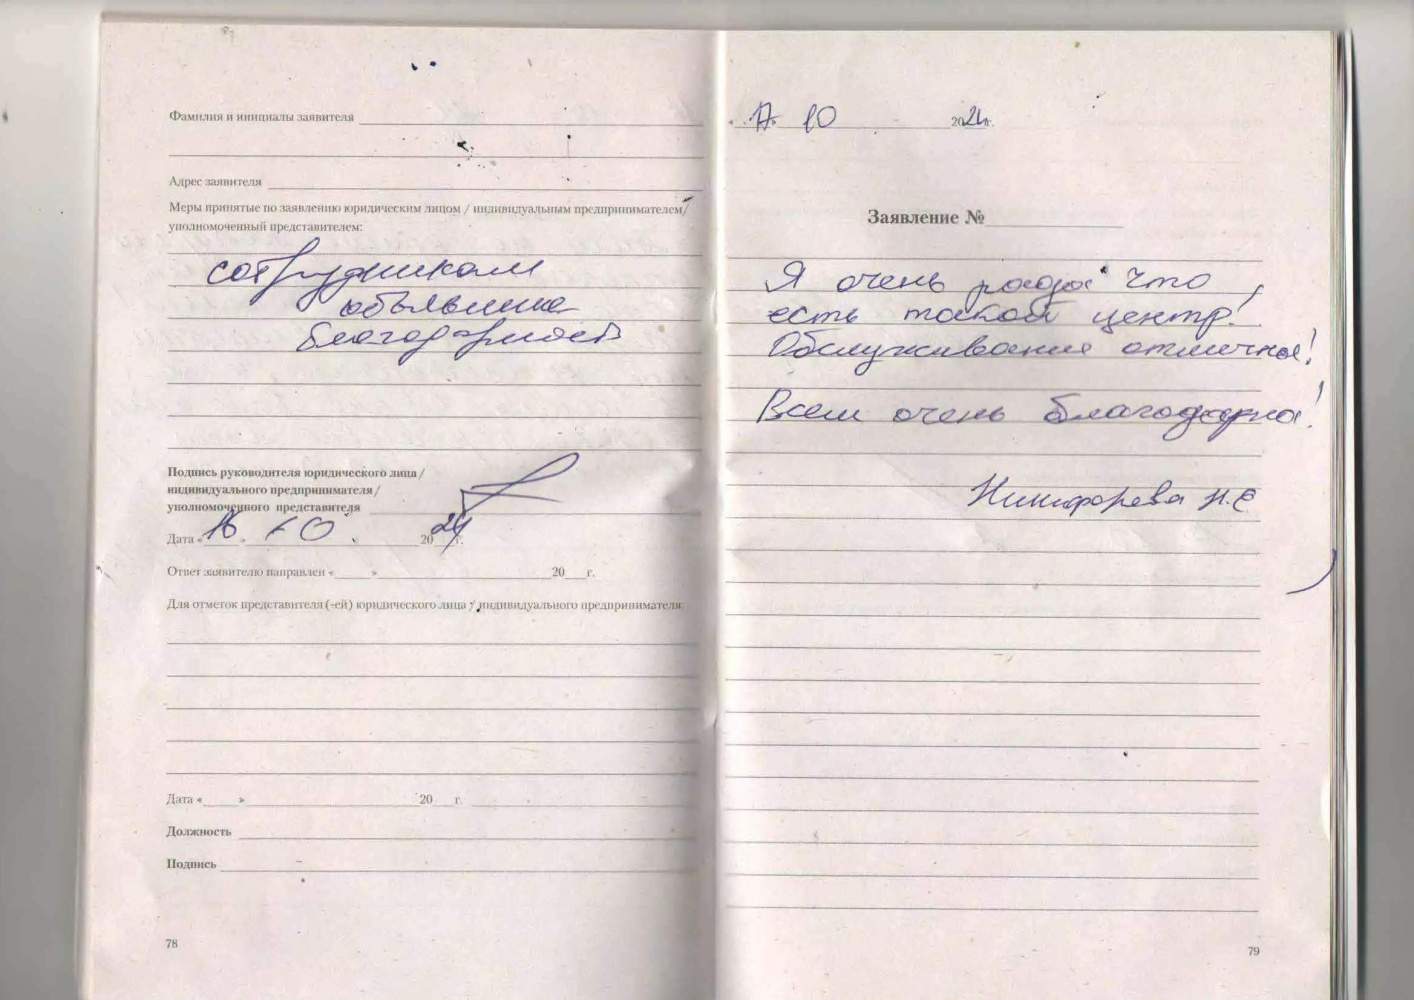 Фамилия и инициалы заявителя
Адрес заявителя
Меры принятые по заявлению юридическим лицом / индивидуальным предпринимателем/
уполномоченный представителем:
сотрудникам
объявлена
благодарность
Подпись руководителя юридического лица /
индивидуального предпринимателя /
уполномоченного представителя
Дата « 16 » 10 20 24 г.
Ответ заявителю направлен « » 20 г.
Для отметок представителя (-ей) юридического лица / индивидуального предпринимателя
Дата « » 20 г.
Должность
Подпись
78
« 17 » 10 2024г.
Заявление №
Я очень рада что
есть такой центр!
Обслуживание отлично!
Всем очень благодарна!
Никифорова Н.Е
79